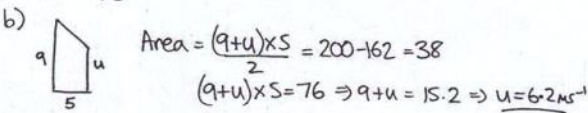 b)
Area = (9+u)×5/2 = 200-162 = 38
9
u
(9+u)×5=76 ⇒ 9+u = 15.2 ⇒ u=6.2ms⁻¹
5